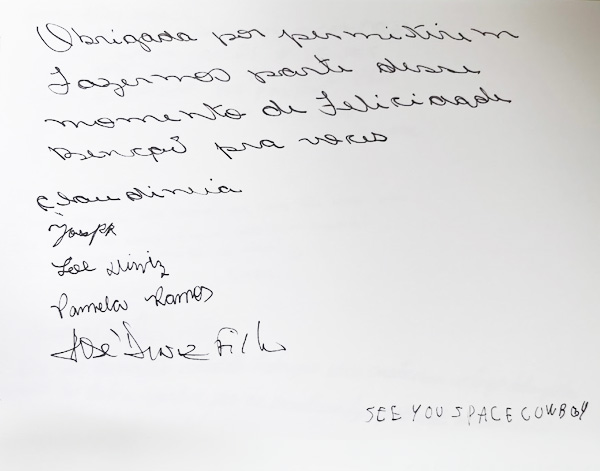 Obrigada por permitirem
fazermos parte desse
momento de felicidade
Benção pra voces
Claudineia
Joseph
Zoe Diniz
Pamela Ramos
José Diniz Filho
SEE YOU SPACE COWBOY